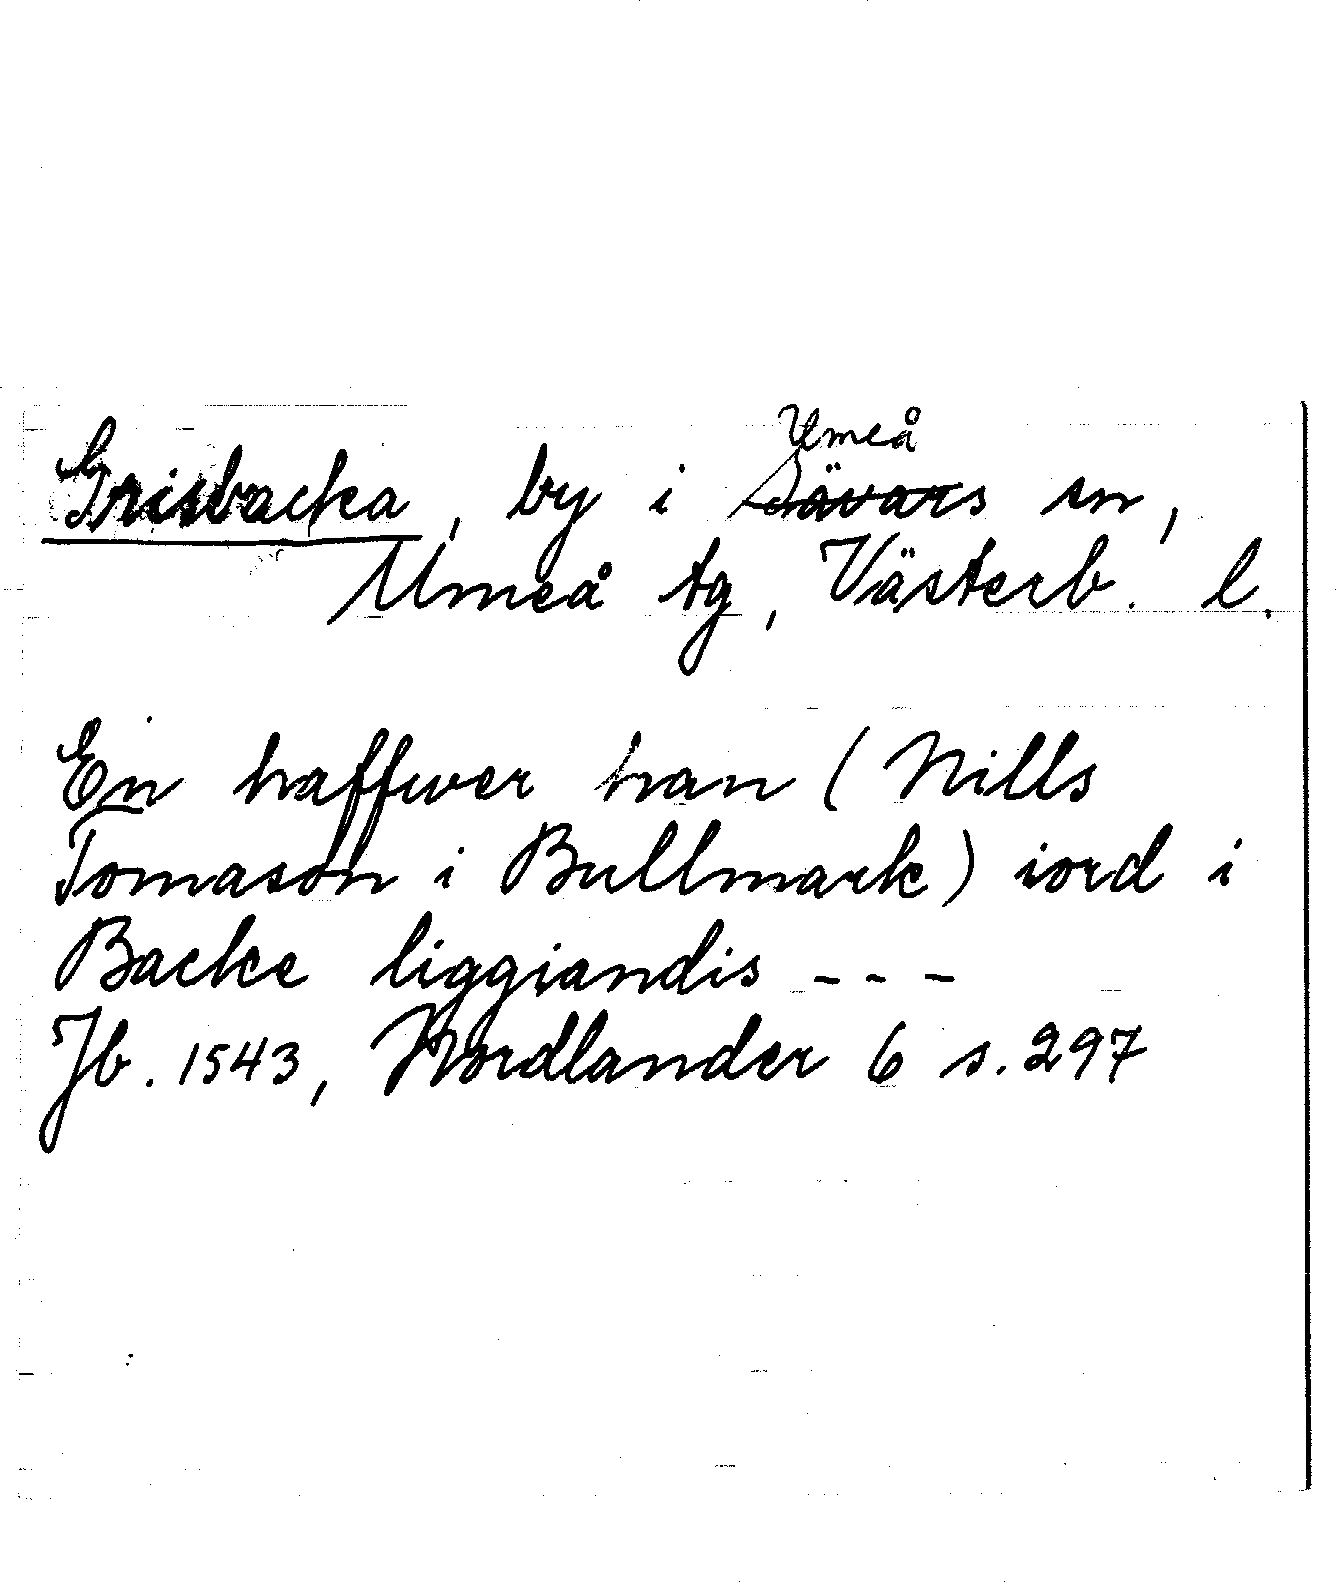 Umeå
Grisbacka, by i Sävars sn,
Umeå tg, Västerb. l.
En haffwer han (Nills
Tomason i Bullmark) iord i
Backe liggiandis - - -
Jb. 1543, Nordlander 6 s. 297